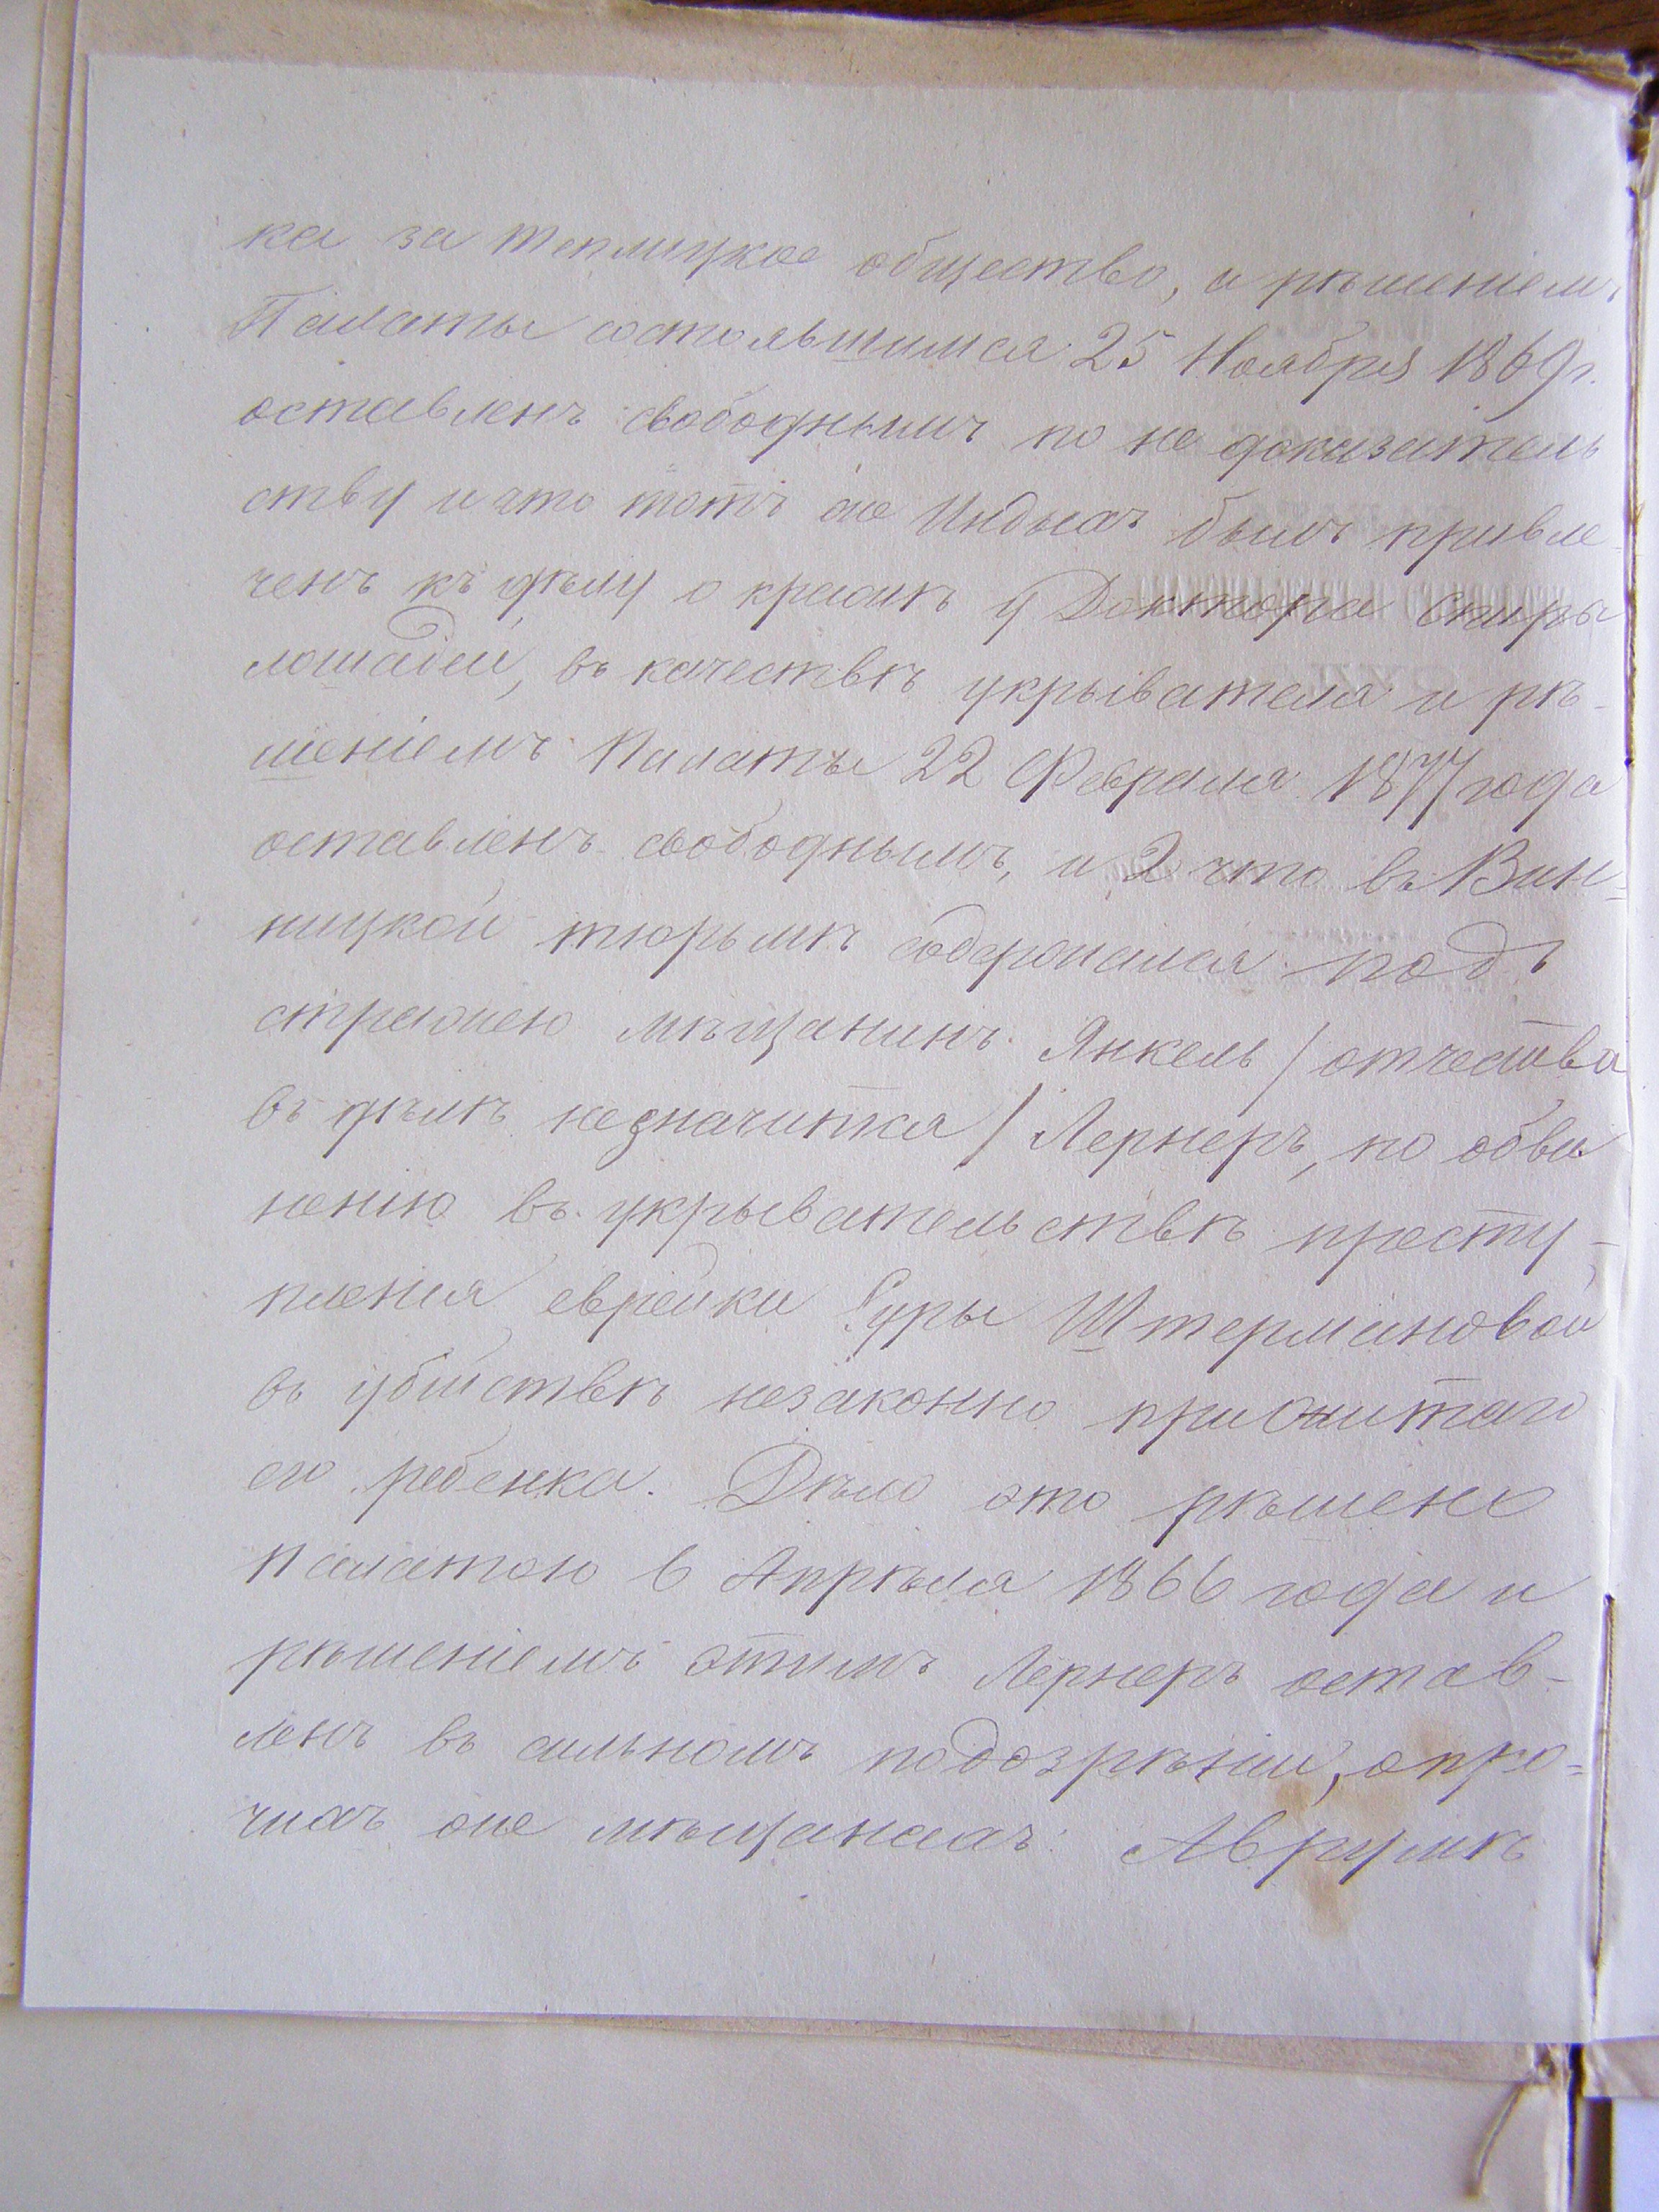 ка за теплицкое общество, и рѣшеніемъ
Палаты состоявшимся 25 Ноября 1869 г.
оставленъ свободнымъ по не доказатель
ству и что тотъ же Индыхъ былъ привле
ченъ къ дѣлу о кражѣ у Доктора Спиры
лошадей, въ качествѣ укрывателя и рѣ-
шеніемъ Палаты 22 Февраля 1877 года
оставленъ свободнымъ, и 2 что въ Вин=
ницкой тюрьмѣ содержался подъ
стражею мѣщанинъ Янкель / отчества
въ дѣлѣ незначится / Лернеръ, по обви
ненію въ укрывательствѣ престу-
пленія еврейки Суры Штермановой
въ убійствѣ незаконно прижитаго
ею ребенка. Дѣло это рѣшено
Палатою 6 Апрѣля 1866 года и
рѣшеніемъ этимъ Лернеръ остав-
ленъ въ сильномъ подозрѣніи, о про=
чихъ же мѣщанахъ: Аврумѣ